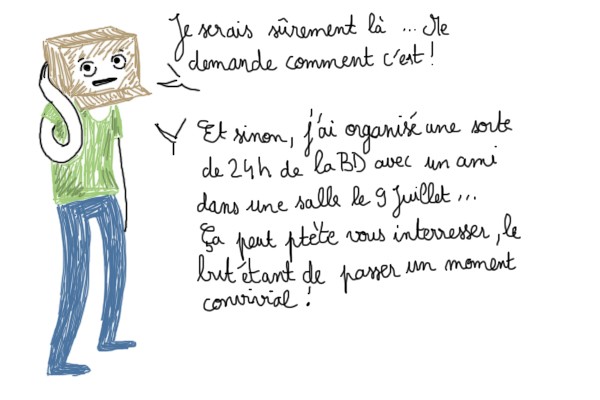 Je serais sûrement là ... Me
demande comment c'est !
Et sinon, j'ai organisé une sorte
de 24h de la BD avec un ami
dans une salle le 9 Juillet...
Ça peut ptète vous interresser, le
but étant de passer un moment
convivial !